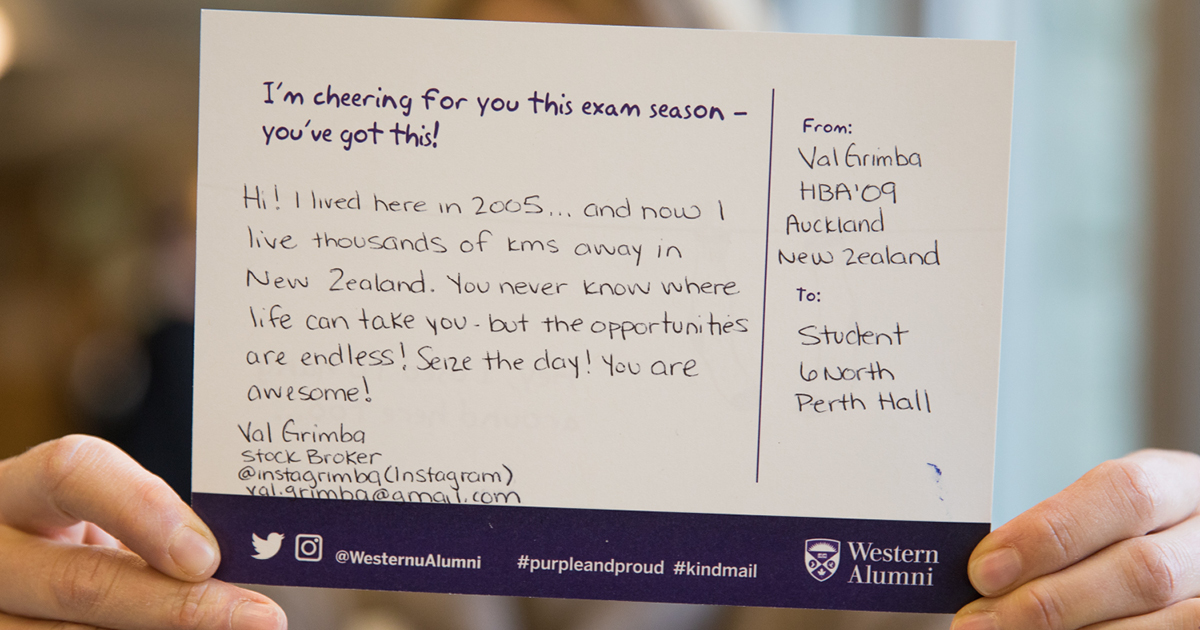 I'm cheering for you this exam season –
you've got this!
Hi! I lived here in 2005... and now I
live thousands of kms away in
New Zealand. You never know where
life can take you - but the opportunities
are endless! Seize the day! You are
awesome!
Val Grimba
Stock Broker
@instagrimba (Instagram)
val.grimba@gmail.com
From:
Val Grimba
HBA'09
Auckland
New Zealand
To:
Student
6 North
Perth Hall
@WesternuAlumni #purpleandproud #kindmail
Western
Alumni